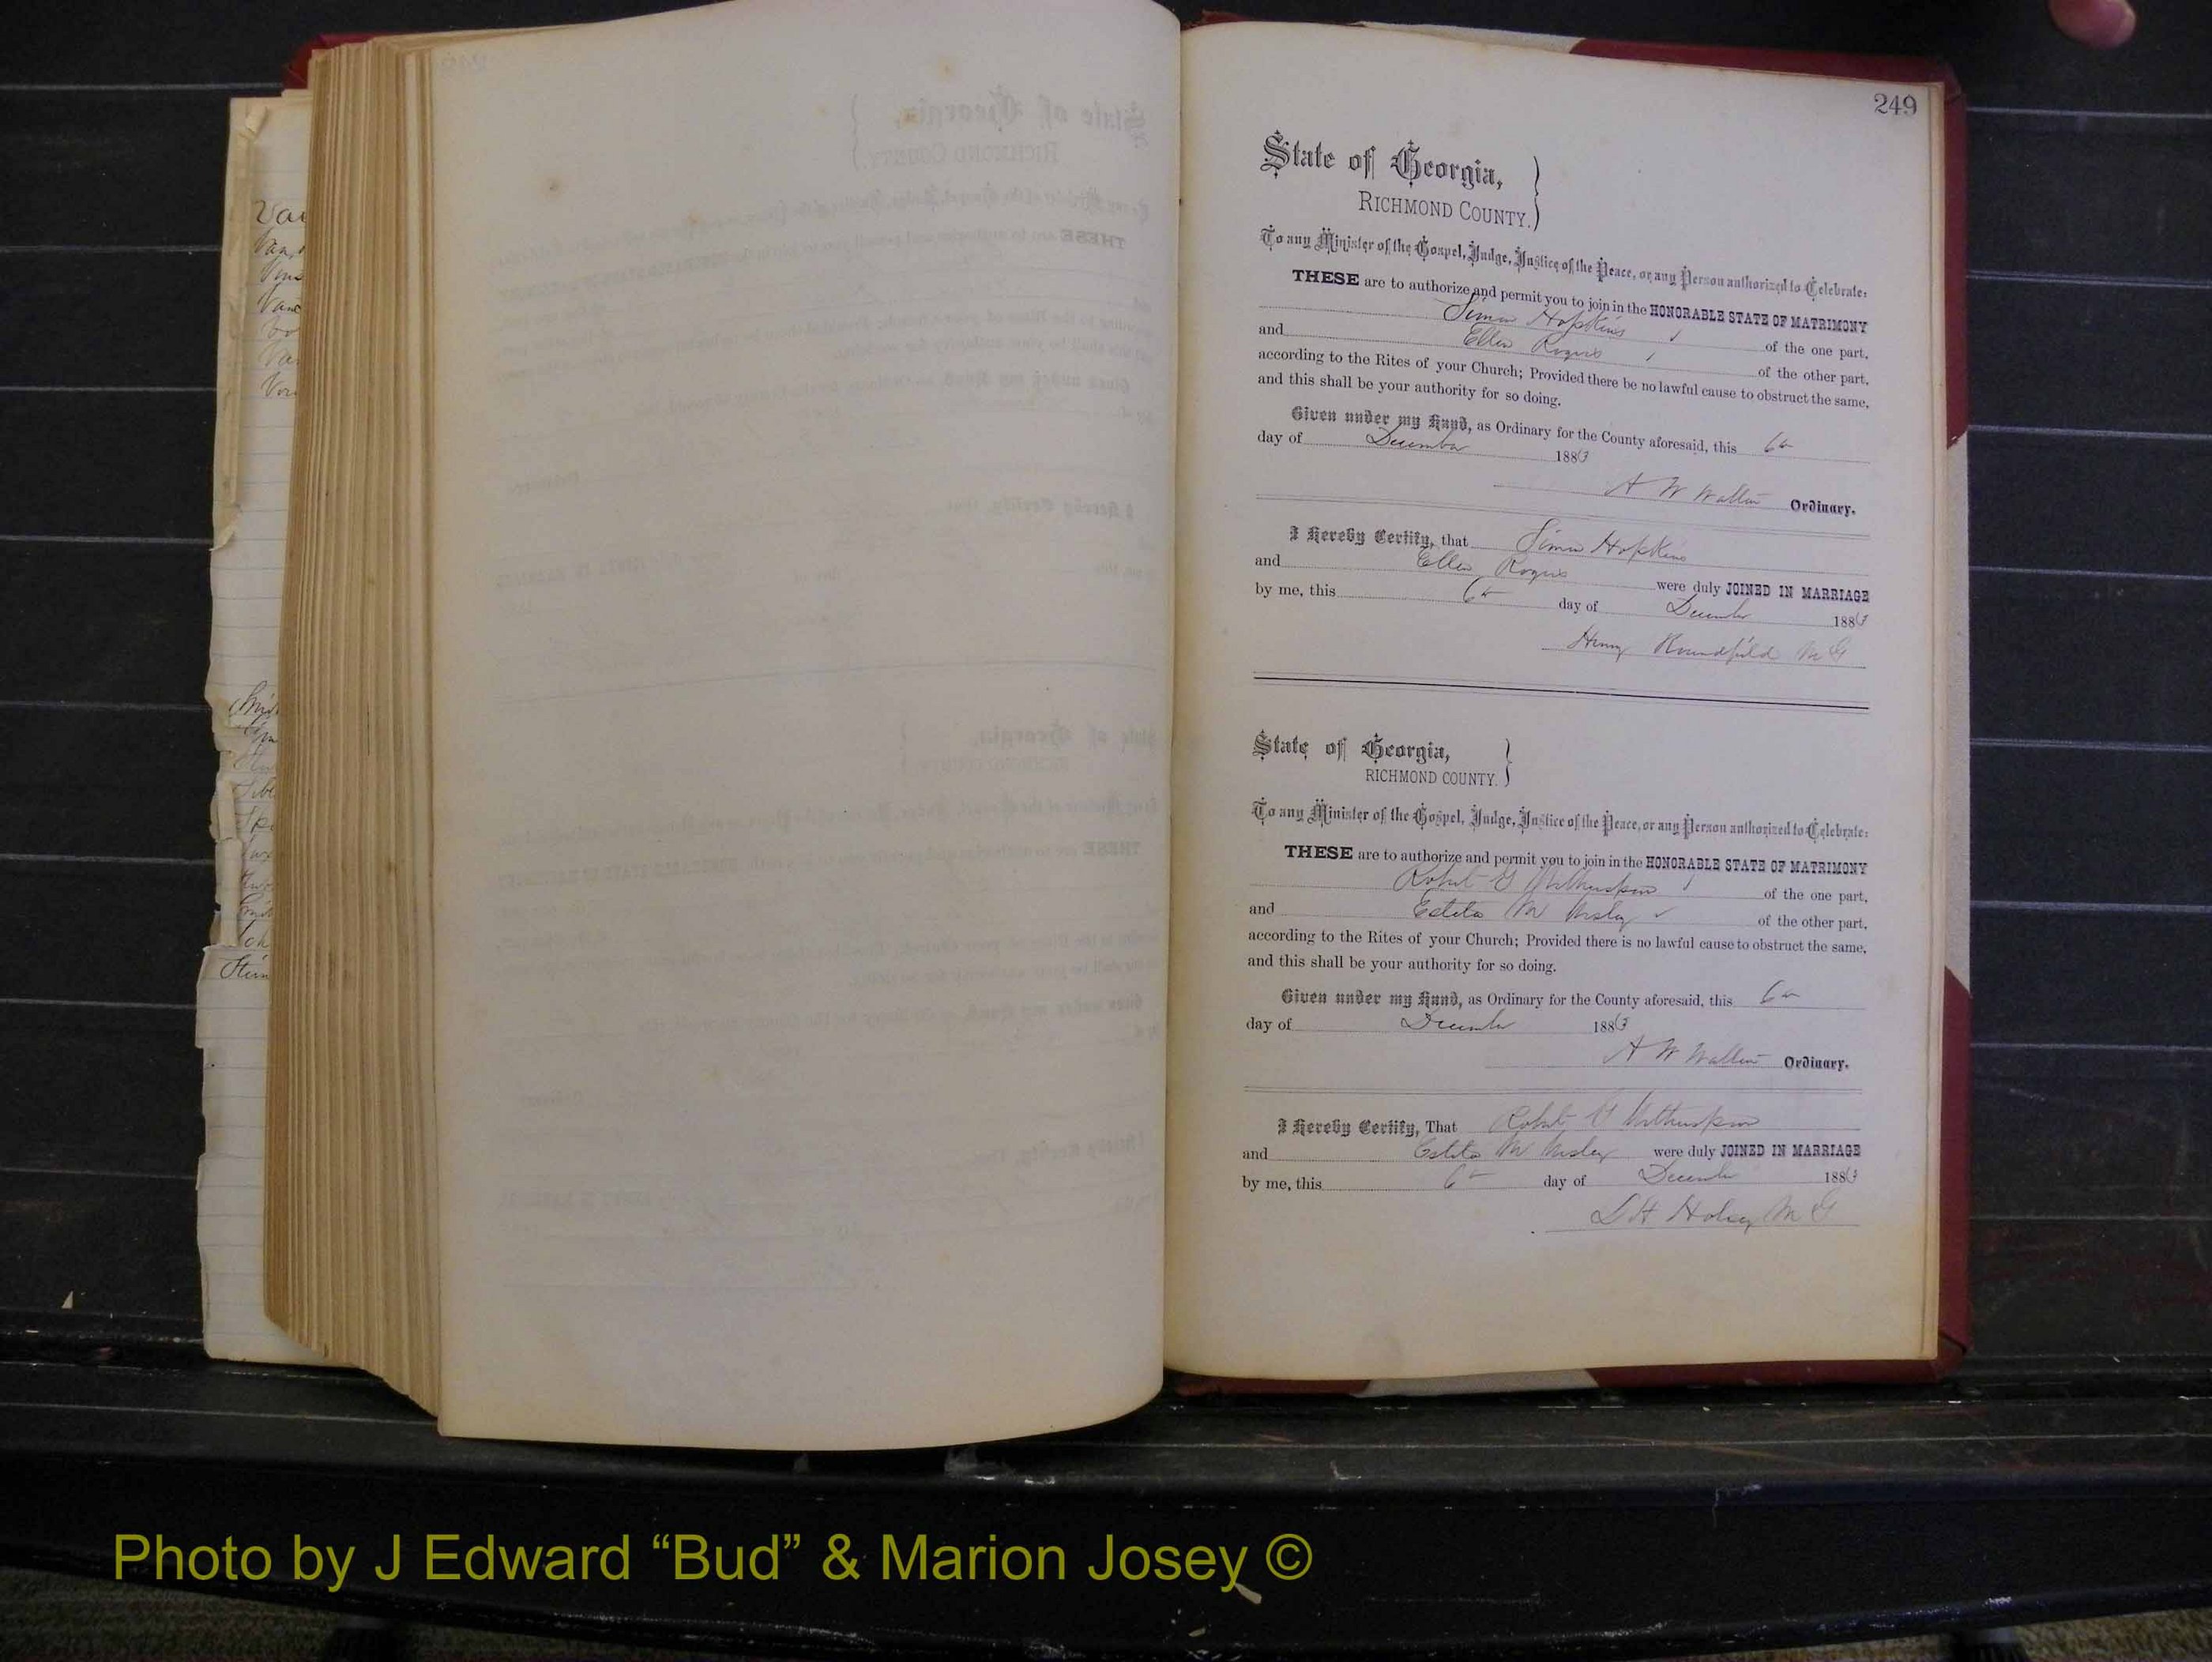 249
State of Georgia,
RICHMOND COUNTY.
To any Minister of the Gospel, Judge, Justice of the Peace, or any Person authorized to Celebrate:
THESE are to authorize and permit you to join in the HONORABLE STATE OF MATRIMONY
Simon Hopkins of the one part,
and Ellen Rogers of the other part,
according to the Rites of your Church; Provided there be no lawful cause to obstruct the same,
and this shall be your authority for so doing.
Given under my Hand, as Ordinary for the County aforesaid, this 6th
day of December 1883
A W Walton Ordinary.
I Hereby Certify, that Simon Hopkins
and Ellen Rogers were duly JOINED IN MARRIAGE
by me, this 6th day of December 1883
Henry M G
State of Georgia,
RICHMOND COUNTY.
To any Minister of the Gospel, Judge, Justice of the Peace, or any Person authorized to Celebrate:
THESE are to authorize and permit you to join in the HONORABLE STATE OF MATRIMONY
Robert G Witherspoon of the one part,
and M of the other part,
according to the Rites of your Church; Provided there is no lawful cause to obstruct the same,
and this shall be your authority for so doing.
Given under my Hand, as Ordinary for the County aforesaid, this 6th
day of December 1883
A W Walton Ordinary.
I Hereby Certify, That Robert G Witherspoon
and M were duly JOINED IN MARRIAGE
by me, this 6th day of December 1883
L H Holsey M G
Photo by J Edward “Bud” & Marion Josey ©